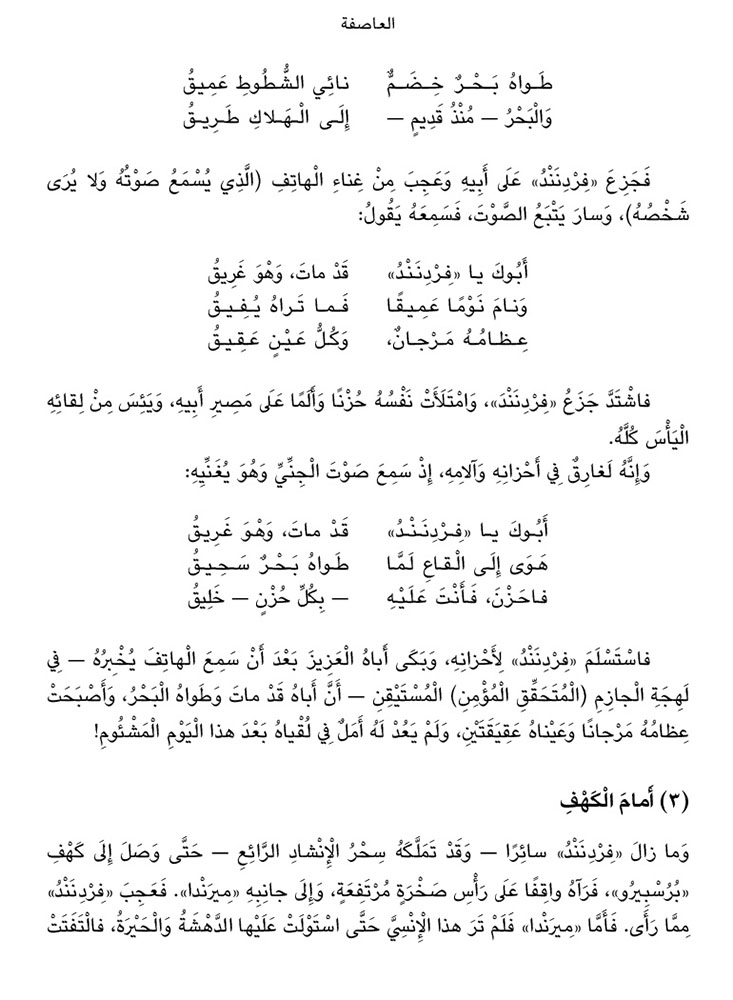 العاصفة
طَواهُ بَحْرٌ خِضَمٌّ نائِي الشُّطُوطِ عَمِيقُ
وَالْبَحْرُ — مُنْذُ قَدِيمٍ — إِلَى الْهَلاكِ طَرِيقُ
فَجَزِعَ «فِرْدِنَنْدُ» عَلَى أَبِيهِ وَعَجِبَ مِنْ غِناءِ الْهاتِفِ (الَّذِي يُسْمَعُ صَوْتُهُ وَلا يُرَى
شَخْصُهُ)، وَسارَ يَتْبَعُ الصَّوْتَ، فَسَمِعَهُ يَقُولُ:
أَبُوكَ يا «فِرْدِنَنْدُ» قَدْ ماتَ، وَهْوَ غَرِيقُ
وَنامَ نَوْمًا عَمِيقًا فَما تَراهُ يُفِيقُ
عِظامُهُ مَرْجانٌ، وَكُلُّ عَيْنٍ عَقِيقُ
فاشْتَدَّ جَزَعُ «فِرْدِنَنْدَ»، وَامْتَلَأَتْ نَفْسُهُ حُزْنًا وَأَلَمًا عَلَى مَصِيرِ أَبِيهِ، وَيَئِسَ مِنْ لِقائِهِ
الْيَأْسَ كُلَّهُ.
وَإِنَّهُ لَغارِقٌ فِي أَحْزانِهِ وَآلامِهِ، إِذْ سَمِعَ صَوْتَ الْجِنِّيِّ وَهُوَ يُغَنِّيهِ:
أَبُوكَ يا «فِرْدِنَنْدُ» قَدْ ماتَ، وَهْوَ غَرِيقُ
هَوَى إِلَى الْقاعِ لَمَّا طَواهُ بَحْرٌ سَحِيقُ
فاحْزَنْ، فَأَنْتَ عَلَيْهِ — بِكُلِّ حُزْنٍ — خَلِيقُ
فاسْتَسْلَمَ «فِرْدِنَنْدُ» لِأَحْزانِهِ، وَبَكَى أَباهُ الْعَزِيزَ بَعْدَ أَنْ سَمِعَ الْهاتِفَ يُخْبِرُهُ — فِي
لَهِجَةِ الْجازِمِ (الْمُتَحَقِّقِ الْمُؤْمِنِ) الْمُسْتَيْقِنِ — أَنَّ أَباهُ قَدْ ماتَ وَطَواهُ الْبَحْرُ، وَأَصْبَحَتْ
عِظامُهُ مَرْجانًا وَعَيْناهُ عَقِيقَتَيْنِ، وَلَمْ يَعُدْ لَهُ أَمَلٌ فِي لُقْياهُ بَعْدَ هذا الْيَوْمِ الْمَشْئُومِ!
(٣) أَمامَ الْكَهْفِ
وَما زالَ «فِرْدِنَنْدُ» سائِرًا — وَقَدْ تَمَلَّكَهُ سِحْرُ الْإِنْشادِ الرَّائِعِ — حَتَّى وَصَلَ إِلَى كَهْفِ
«بُرُسْبِيرُو»، فَرَآهُ واقِفًا عَلَى رَأْسِ صَخْرَةٍ مُرْتَفِعَةٍ، وَإِلَى جانِبِهِ «مِيرَنْدا». فَعَجِبَ «فِرْدِنَنْدُ»
مِمَّا رَأَى. فَأَمَّا «مِيرَنْدا» فَلَمْ تَرَ هذا الْإِنْسِيَّ حَتَّى اسْتَوْلَتْ عَلَيْها الدَّهْشَةُ وَالْحَيْرَةُ، فالْتَفَتَتْ